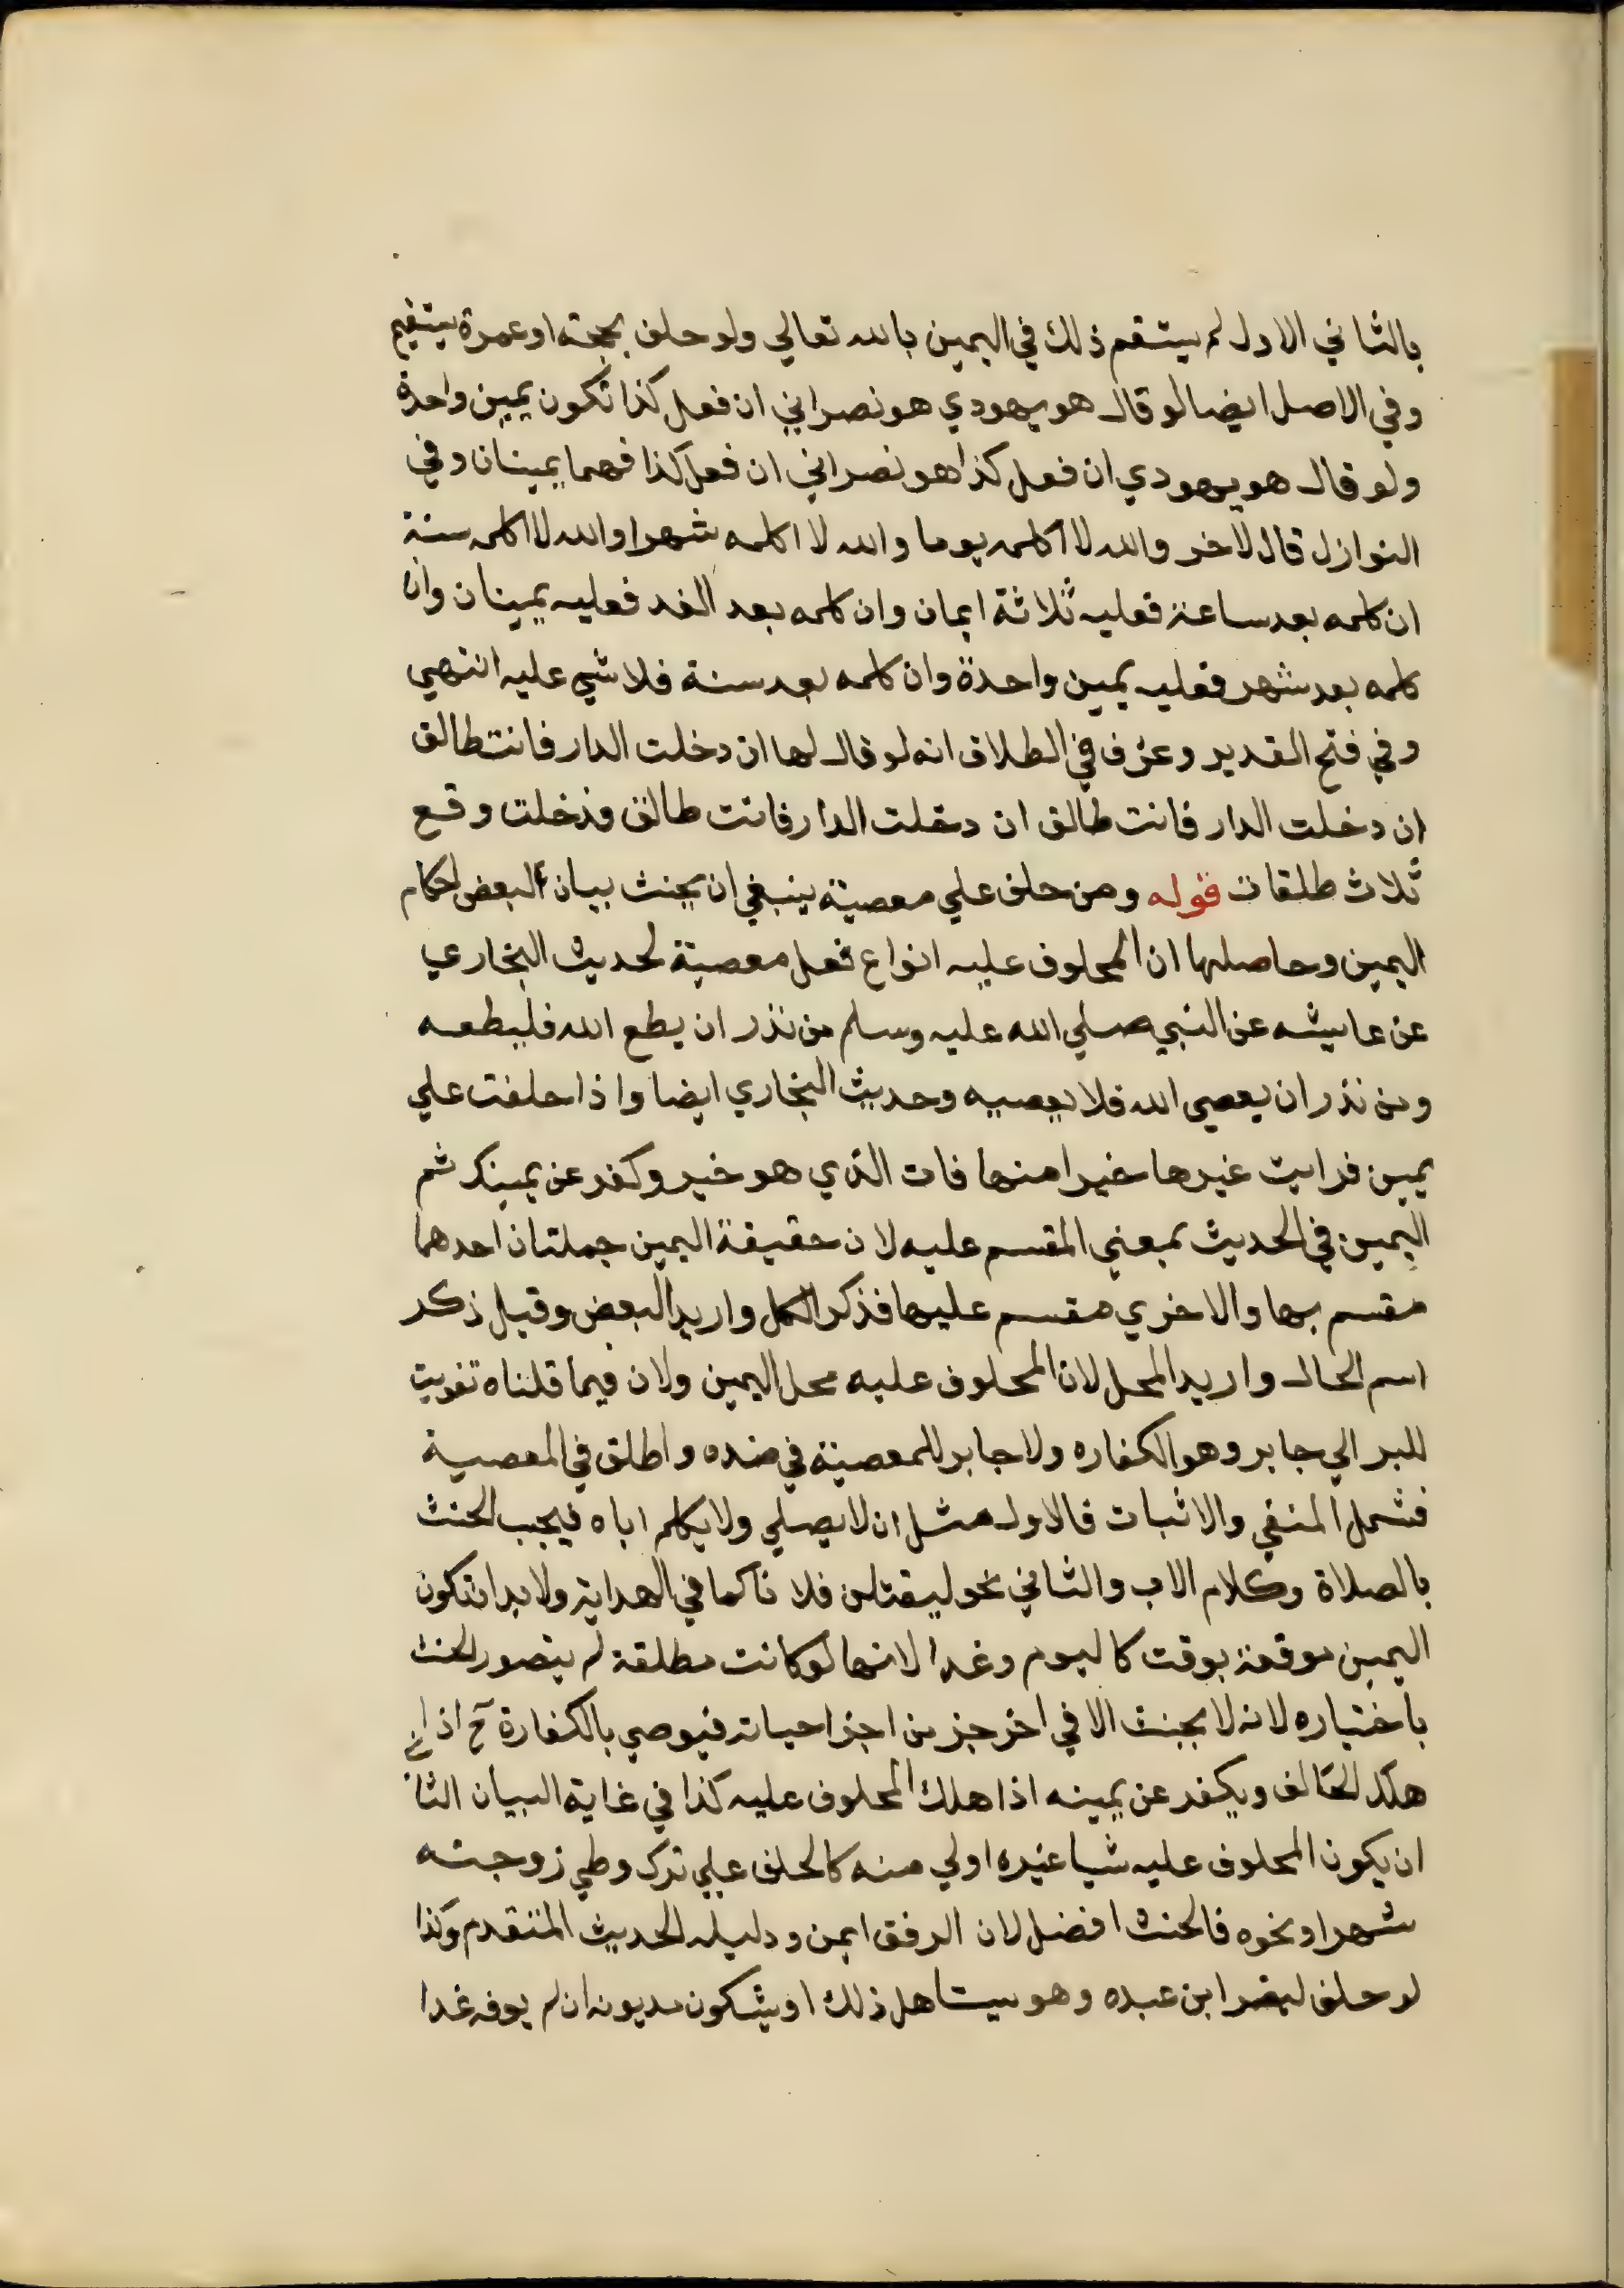 بالثاني الاول لم يستقم ذلك في اليمين بالله تعالي ولو حلف بحجة او عمرة يستقيم
وفي الاصل ايضا لو قال هو يهودي هو نصراني ان فعل كذا تكون يمين واحدة
ولو قال هو يهودي ان فعل كذا هو نصراني ان فعل كذا فهما يمينان وفي
النوازل قال لاخر والله لا اكلمه يوما والله لا اكلمه شهرا والله لا اكلمه سنة
ان كلمه بعد ساعة فعليه ثلاثة ايمان وان كلمه بعد الغد فعليه يمينان وان
كلمه بعد شهر فعليه يمين واحدة وان كلمه بعد سنة فلا شي عليه انتهي
وفي فتح القدير وعرف في الطلاق انه لو قال لها ان دخلت الدار فانت طالق
ان دخلت الدار فانت طالق ان دخلت الدار فانت طالق فدخلت وقع
ثلاث طلقات قوله ومن حلف علي معصية ينبغي ان يحنث بيان لبعض احكام
اليمين وحاصلها ان المحلوف عليه انواع فعل معصية لحديث البخاري
عن عايشه عن النبي صلي الله عليه وسلم من نذر ان يطع الله فليطعه
ومن نذر ان يعصي الله فلا يعصيه وحديث البخاري ايضا واذا حلفت علي
يمين فرايت غيرها خيرا منها فات الذي هو خير وكفر عن يمينك ثم
اليمين في الحديث بمعني المقسم عليه لان حقيقة اليمين جملتان احدهما
مقسم بها والاخري مقسم عليها فذكر الكل واريد البعض وقيل ذكر
اسم الحال واريد المحل لان المحلوف عليه محل اليمين ولان فيما قلناه تفويت
للبر الي جابر وهو الكفاره ولا جابر للمعصية في ضده واطلق في المعصية
فشمل المنفي والاثبات فالاول مثل ان لا يصلي ولا يكلم اباه فيجب الحنث
بالصلاة وكلام الاب والثاني نحو ليقتلن فلانا كما في الهداية ولا بد ان تكون
اليمين موقتة بوقت كاليوم وغدا لانها لو كانت مطلقة لم يتصور الحنث
باختياره لانه لا يحنث الا في اخر جز من اجزا حياته فيوصي بالكفارة ح اذا
هلك الحالف ويكفر عن يمينه اذا هلك المحلوف عليه كذا في غاية البيان الثا
ان يكون المحلوف عليه شيا غيره اولي منه كالحلف علي ترك وطي زوجته
شهرا ونحوه فالحنث افضل لان الرفق ايمن ودليله الحديث المتقدم وكذا
لو حلف ليضر ابن عبده وهو يستاهل ذلك او يشكون مديونه ان لم يوفه غدا